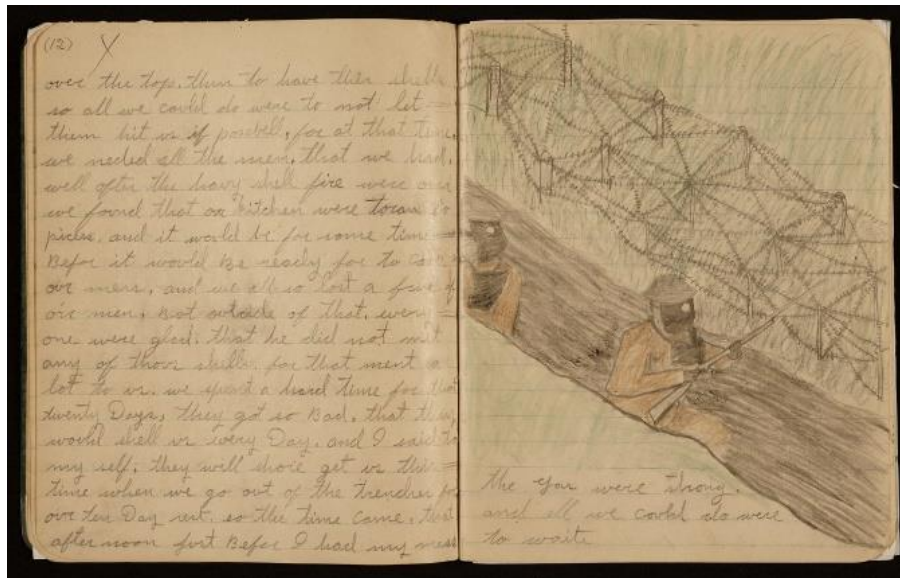 (12) X
over the top, then to have then shells
so all we could do were to not let
them hit us if possbell, for at that time
we neded all the men, that we had,
well after the havy shell fire were over
we found that our kitchen were toran to
pieces, and it would be for some time
Befor it would be ready for to
our mess, and we all so lost a few of
our men, But outside of that, every
one were glad, that he did not mit
any of thows shells, for that ment a
lot to us, we spent a hard time for that
twenty Days, they got so Bad, that they
would shell us every Day, and I said to
my self, they will shore get us this
time when we go out of the trenches for
our ten Day rest, so the time came, that
after noon just Befor I had my mess
the gas were strong,
and all we could do were
to waite